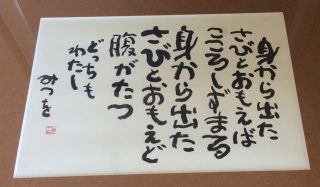 身から出た
さびとおもえば
こころしずまる
身から出た
さびとおもえど
腹がたつ
どっちも
わたし
みつを